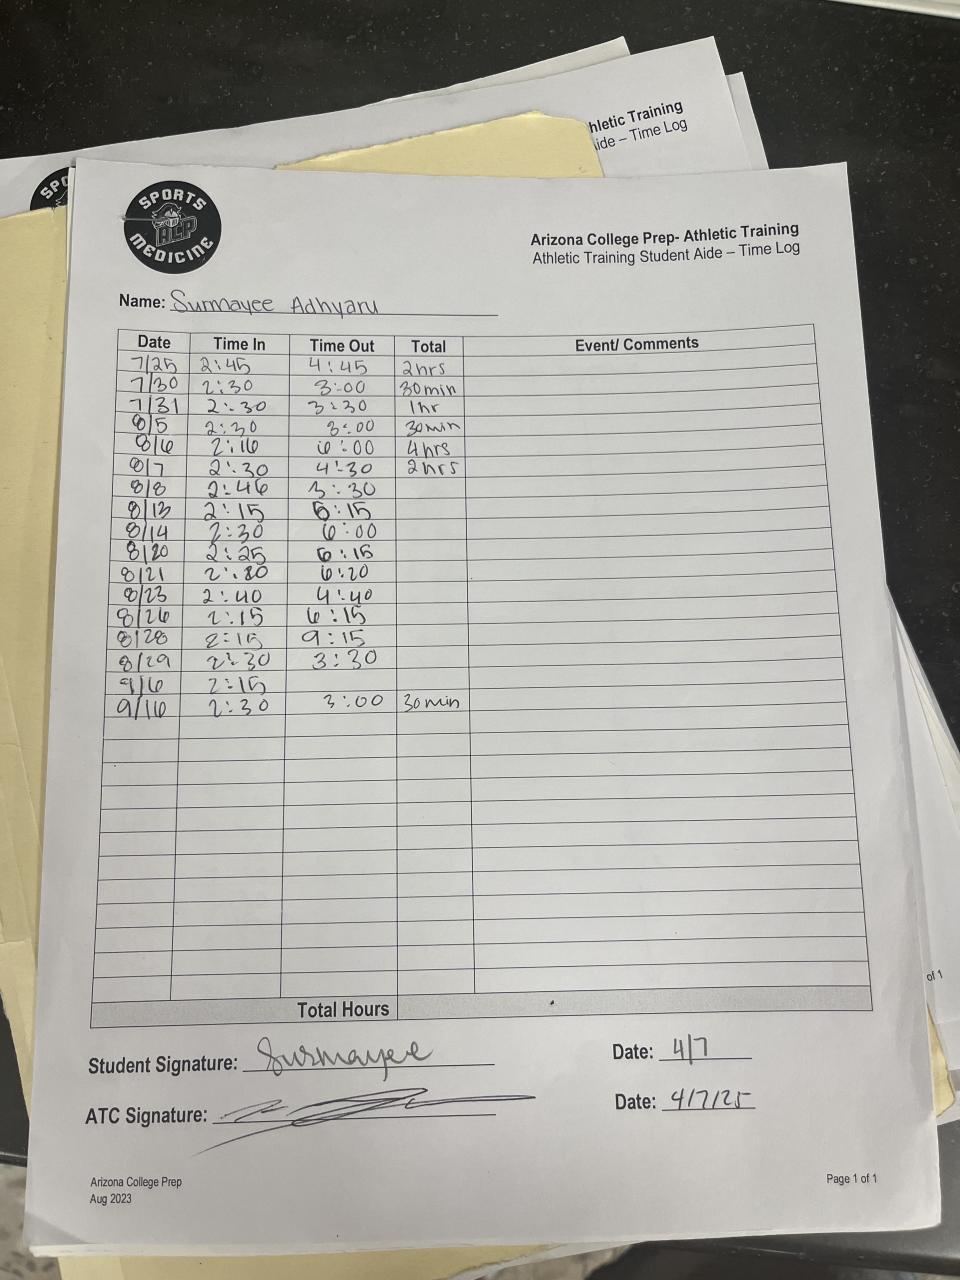 hletic Training
ide – Time Log
SPO
SPORTS
ACP
MEDICINE
Arizona College Prep- Athletic Training
Athletic Training Student Aide – Time Log
Name: Surmayee Adhyaru
Date Time In Time Out Total Event/ Comments
7/25 2:45 4:45 2hrs
7/30 2:30 3:00 30min
7/31 2:30 3:30 1hr
8/5 2:30 3:00 30min
8/6 2:16 6:00 4hrs
8/7 2:30 4:30 2hrs
8/8 2:46 3:30
8/13 2:15 6:15
8/14 2:30 6:00
8/20 2:25 6:15
8/21 2:20 6:20
8/23 2:40 4:40
8/26 2:15 6:15
8/28 2:15 9:15
8/29 2:30 3:30
9/6 2:15
9/16 2:30 3:00 30min
of 1
Total Hours
Student Signature: Surmayee Date: 4/7
ATC Signature: Date: 4/7/25
Arizona College Prep Page 1 of 1
Aug 2023